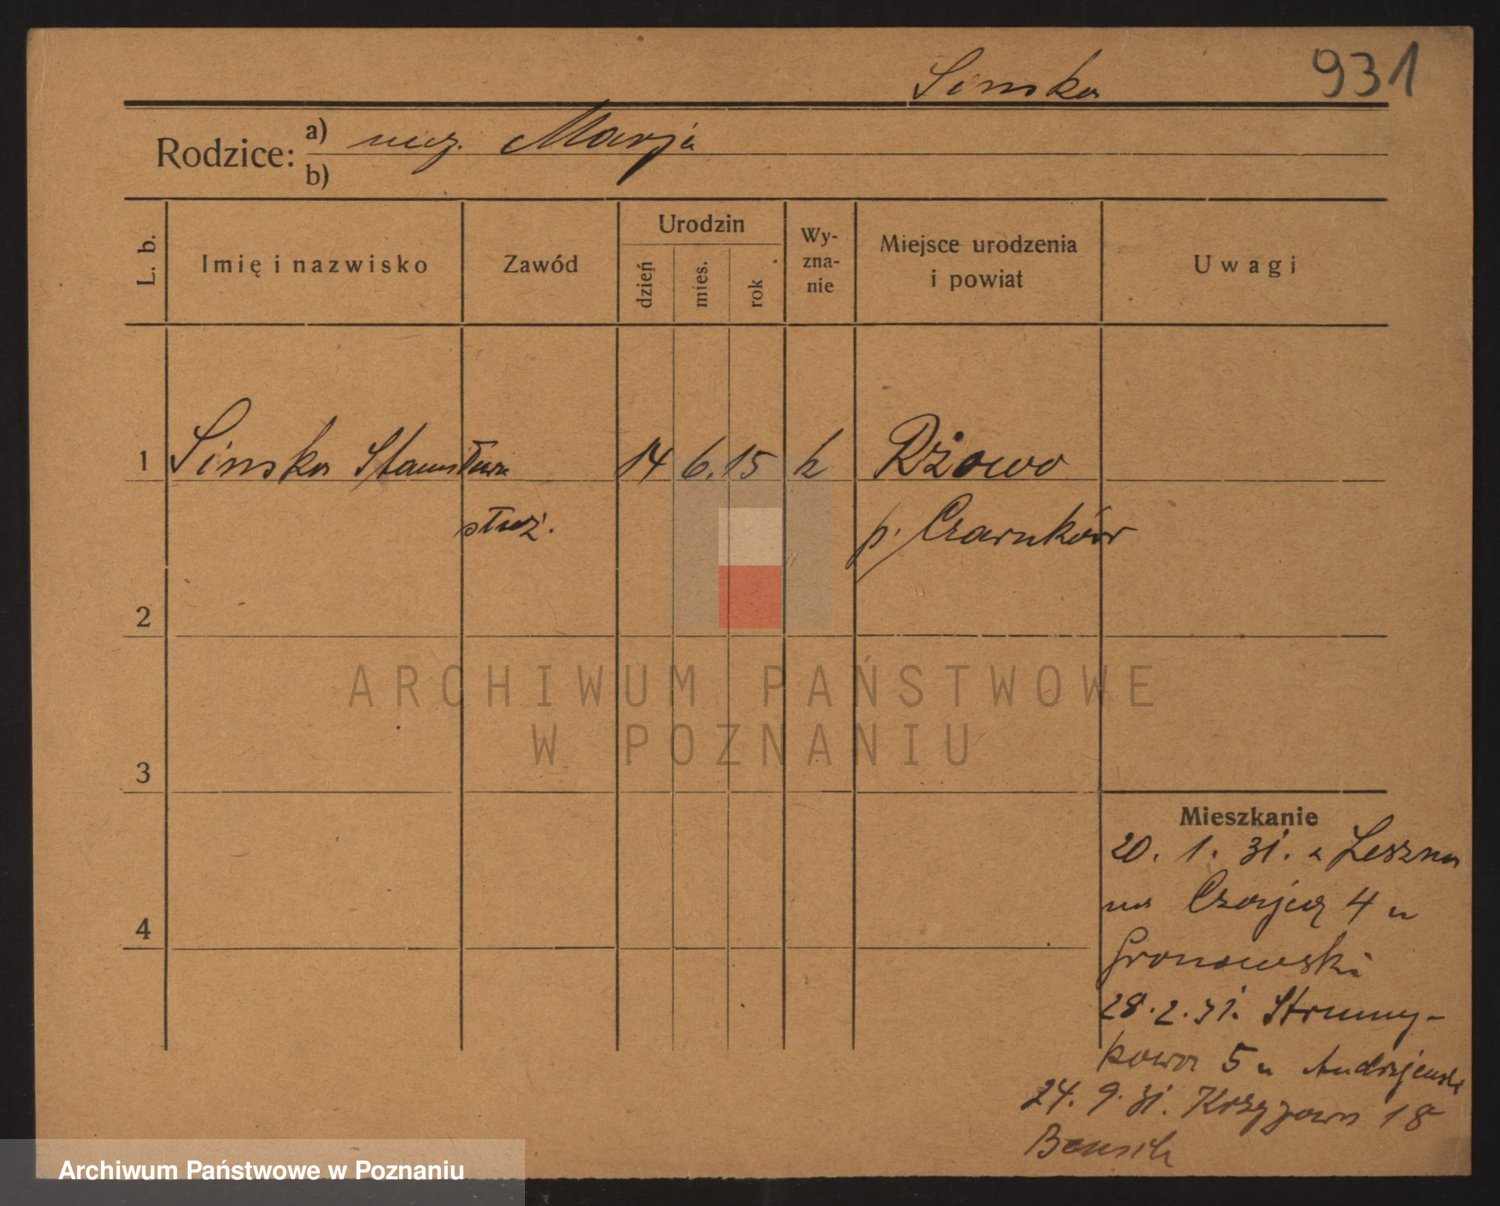 Sinska 931
Rodzice: a) niez. Marja
b)
L. b. Imię i nazwisko Zawód Urodzin dzień mies. rok Wy-zna-nie Miejsce urodzenia i powiat Uwagi
1 Sinska Stanisława 14 6. 15 k Rżowo
służ. p. Czarnków
2
ARCHIWUM PAŃSTWOWE
W POZNANIU
3
Mieszkanie
20. 1. 31. z Leszna
na 4 u
Gronowski
4
28. 2. 31. Strumy-
kowa 5 u Andrzejewski
24. 9. 31. Krzyżowa 18
Archiwum Państwowe w Poznaniu